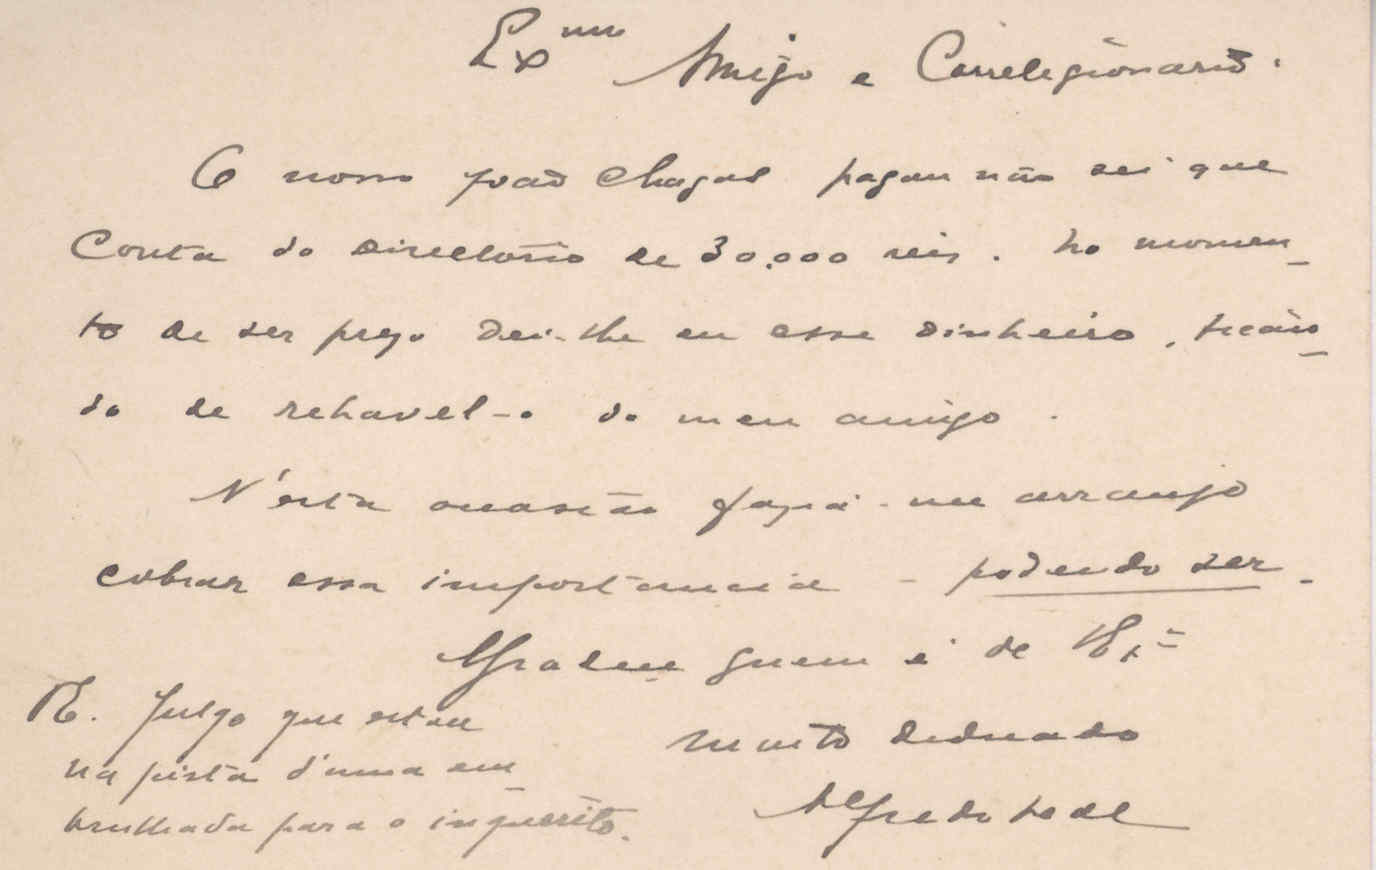 Exmo Amigo e Correligionario.
O nosso João Chagas pagou não sei que
Conta do Directorio de 30.000 reis. No momen-
to de ser preso dei-lhe eu esse dinheiro, fican-
do de rehavel-o do meu amigo.
N'esta occasião faça-me arranjo
cobrar essa importancia - podendo ser.
quem é de V. Exª
muito dedicado
Alfredo Leal
Julgo que estou
na pista d'uma em-
brulhada para o inquerito.